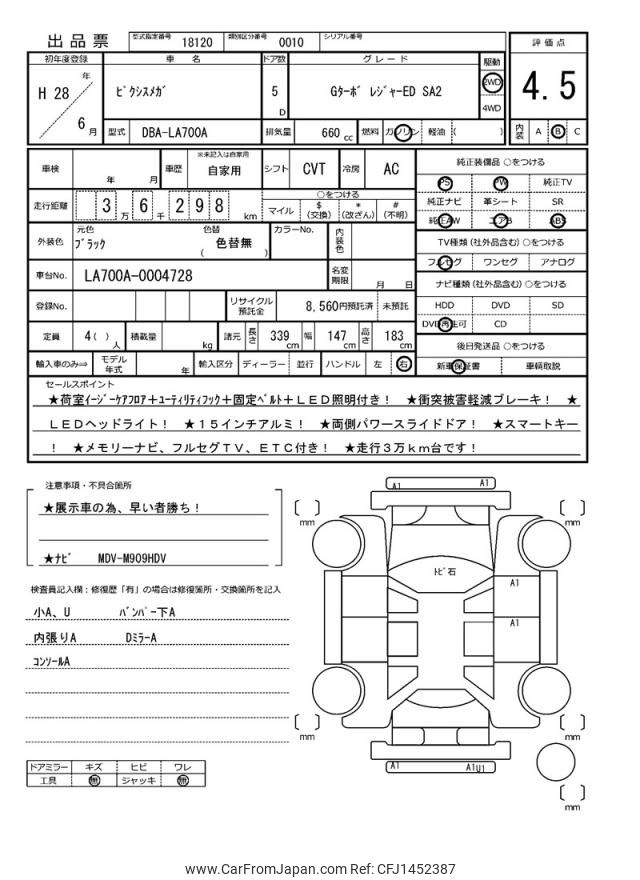 出品票 型式指定番号 18120 類別区分番号 0010 シリアル番号
評価点
4.5
内装 A B C
初年度登録 車名 ドア数 グレード 駆動
H 28 年 6 月
ﾋﾟｸｼｽﾒｶﾞ 5 D Gﾀｰﾎﾞ ﾚｼﾞｬｰED SA2 2WD 4WD
型式 DBA-LA700A 排気量 660 cc 燃料 ガソリン 軽油 ( )
車検 年 月 車歴 ※未記入は自家用 自家用 シフト CVT 冷房 AC
純正装備品 ○をつける
PS PW 純正TV
純正ナビ 革シート SR
純正AW エアB ABS
走行距離 3 万 6 千 2 9 8 km
○をつける
マイル $ (交換) * (改ざん) # (不明)
外装色 元色 ﾌﾞﾗｯｸ 色替 色替無 ( ) カラーNo. 内装色
TV種類 (社外品含む) ○をつける
フルセグ ワンセグ アナログ
車台No. LA700A-0004728 名変期限 月 日
ナビ種類 (社外品含む) ○をつける
HDD DVD SD
DVD再生可 CD
登録No. リサイクル預託金 8,560 円預託済 未預託
定員 4 ( ) 人 積載量 kg 諸元 長さ 339 cm 幅 147 cm 高さ 183 cm
後日発送品 ○をつける
新車保証書 車輌取説
輸入車のみ⇒ モデル年式 年 輸入区分 ディーラー 並行 ハンドル 左 右
セールスポイント
★荷室ｲｰｼﾞｰｹｱﾌﾛｱ＋ﾕｰﾃｨﾘﾃｨﾌｯｸ＋固定ﾍﾞﾙﾄ＋ＬＥＤ照明付き！ ★衝突被害軽減ブレーキ！ ★
ＬＥＤヘッドライト！ ★１５インチアルミ！ ★両側パワースライドドア！ ★スマートキー
！ ★メモリーナビ、フルセグＴＶ、ＥＴＣ付き！ ★走行３万ｋｍ台です！
注意事項・不具合箇所
★展示車の為、早い者勝ち！
★ﾅﾋﾞ MDV-M909HDV
検査員記入欄：修復歴「有」の場合は修復箇所・交換箇所を記入
小A、U ﾊﾞﾝﾊﾟｰ下A
内張りA DﾐﾗｰA
ｺﾝｿｰﾙA
ドアミラー キズ ヒビ ワレ
工具 無 ジャッキ 無
A1 A1
mm mm
ﾄﾋﾞ石
A1
A1
mm mm
A1 A1U1
mm
www.CarFromJapan.com Ref: CFJ1452387